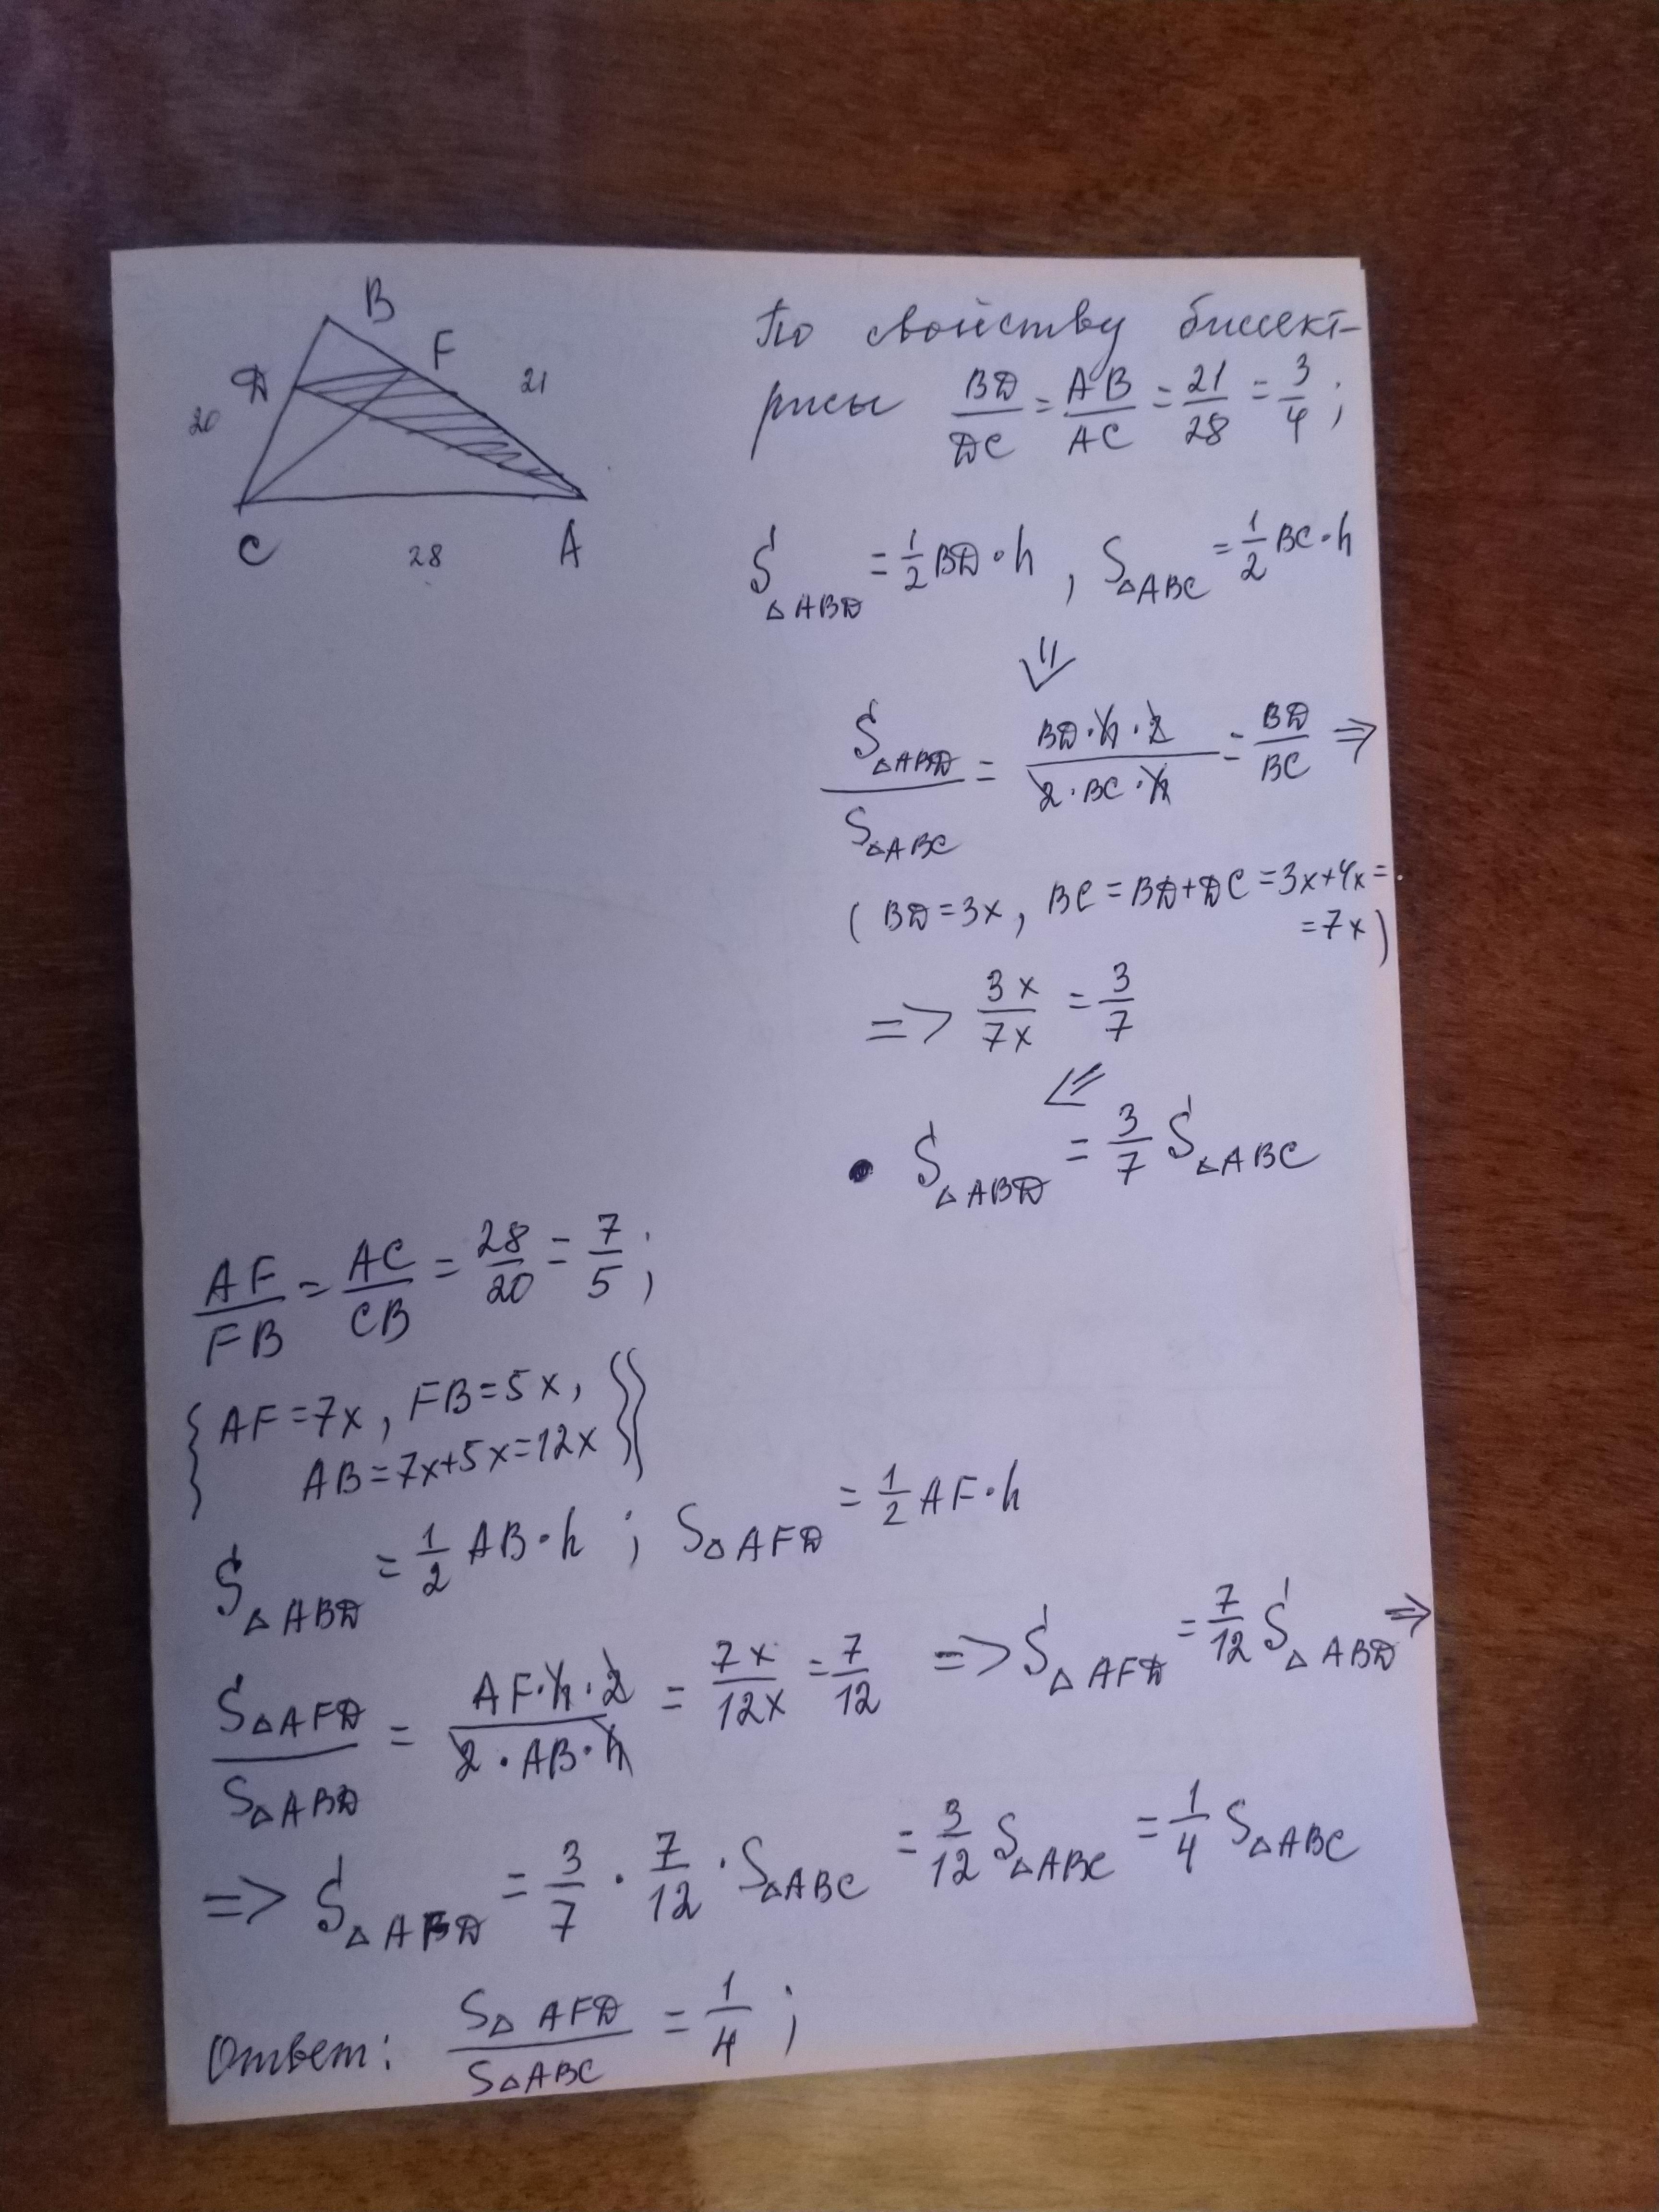 B
F
D
20
21
C
28
A
По свойству биссект-
рисы BD/DC = AB/AC = 21/28 = 3/4 ;
S△ABD = 1/2 BD · h , S△ABC = 1/2 BC · h
⇓
S△ABD/S△ABC = BD · h · 2/2 · BC · h = BD/BC ⇒
( BD = 3x , BC = BD + DC = 3x + 4x =
= 7x )
=> 3x/7x = 3/7
⇙
• S△ABD = 3/7 S△ABC
AF/FB = AC/CB = 28/20 = 7/5 ;
{ AF = 7x , FB = 5x , }}
AB = 7x + 5x = 12x
S△ABD = 1/2 AB · h ; S△AFD = 1/2 AF · h
S△AFD/S△ABD = AF · h · 2/2 · AB · h = 7x/12x = 7/12 => S△AFD = 7/12 S△ABD ⇒
=> S△AFD = 3/7 · 7/12 · S△ABC = 3/12 S△ABC = 1/4 S△ABC
Ответ: S△AFD/S△ABC = 1/4 ;